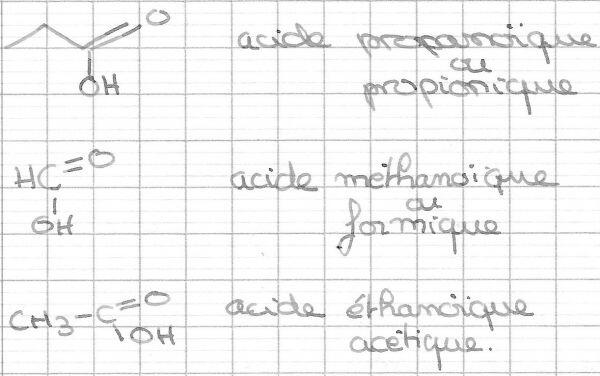 O
acide propanoïque
ou
OH
propionique
HC=O
acide méthanoïque
ou
OH
formique
CH3-C=O
OH
acide éthanoïque
acétique.